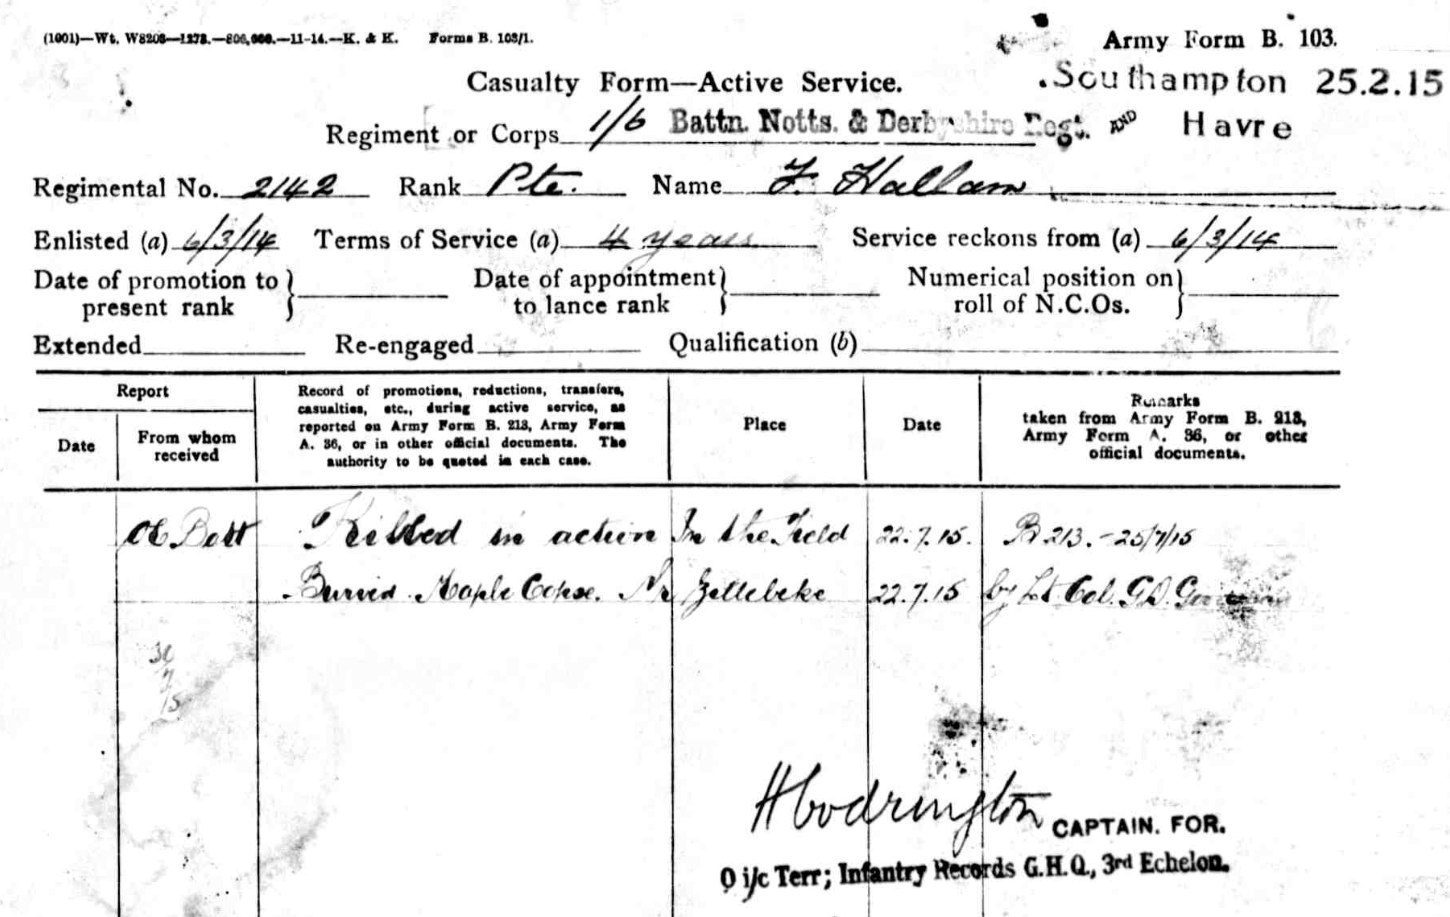 (1001)—Wt. W8208—1278.—806,000.—11-14.—K. & K. Forms B. 103/1.
Army Form B. 103.
Casualty Form—Active Service.
Southampton 25.2.15
Regiment or Corps 1/6 Battn. Notts. & Derbyshire Regt. AND Havre
Regimental No. 2142 Rank Pte. Name F. Hallam
Enlisted (a) 6/3/14 Terms of Service (a) 4 years Service reckons from (a) 6/3/14
Date of promotion to present rank
Date of appointment to lance rank
Numerical position on roll of N.C.Os.
Extended Re-engaged Qualification (b)
Report
Date
From whom received
Record of promotions, reductions, transfers,
casualties, etc., during active service, as
reported on Army Form B. 213, Army Form
A. 36, or in other official documents. The
authority to be quoted in each case.
Place
Date
Remarks
taken from Army Form B. 213,
Army Form A. 36, or other
official documents.
Killed in action In the Field 22.7.15. B 213. - 25/7/15
Buried Maple Copse. Nr Zillebeke 22.7.15 by Lt Col. G.D.
30
7
15
H Codrington CAPTAIN. FOR.
O i/c Terr; Infantry Records G.H.Q., 3rd Echelon.